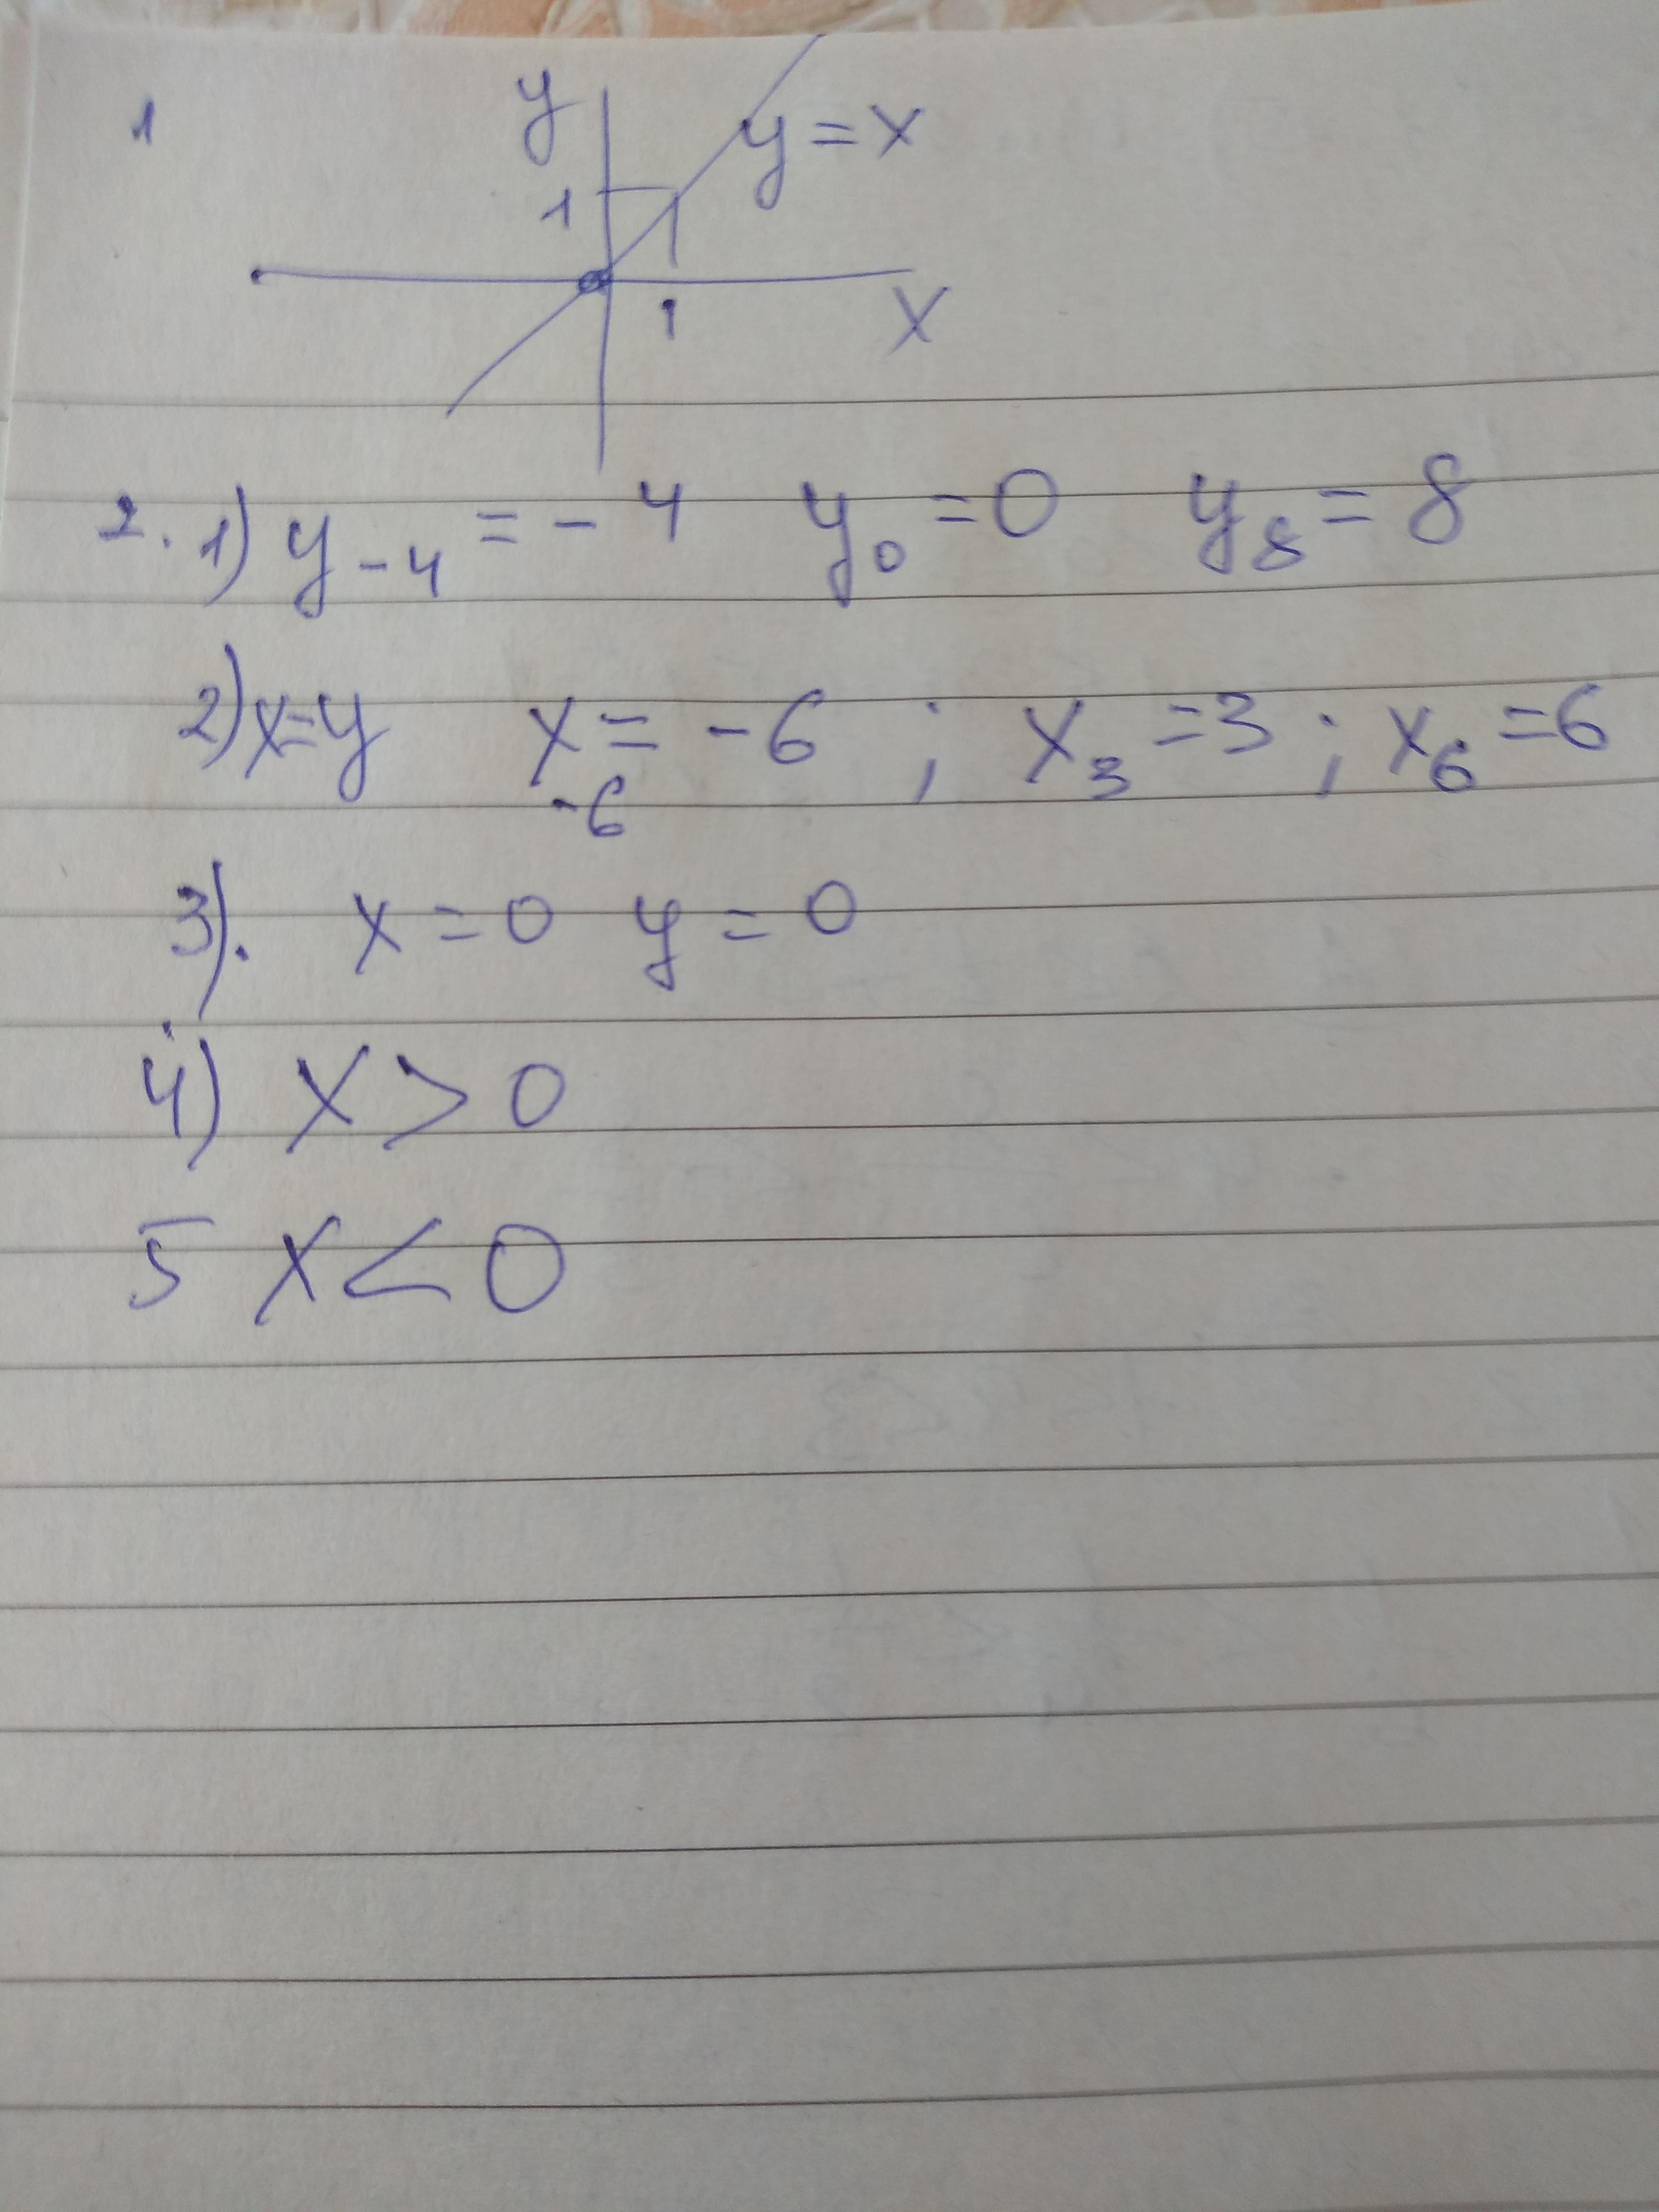 1
y
y = x
1
1
x
2. 1) y₋₄ = - 4 y₀ = 0 y₈ = 8
2) x = y x₋₆ = - 6 ; x₃ = 3 ; x₆ = 6
3). x = 0 y = 0
4) x > 0
5 x < 0